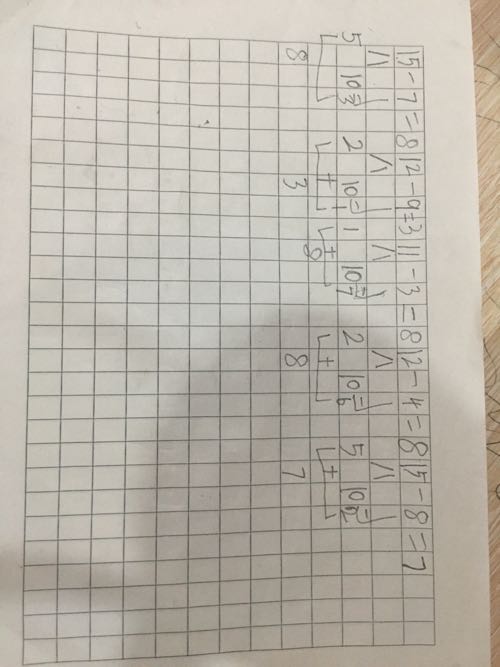 15-7=8 12-9=3 11-3=8 12-4=8 15-8=7
5 10=3 2 10=1 1 10=7 2 10=6 5 10=2
+ + + +
8 3 8 8 7